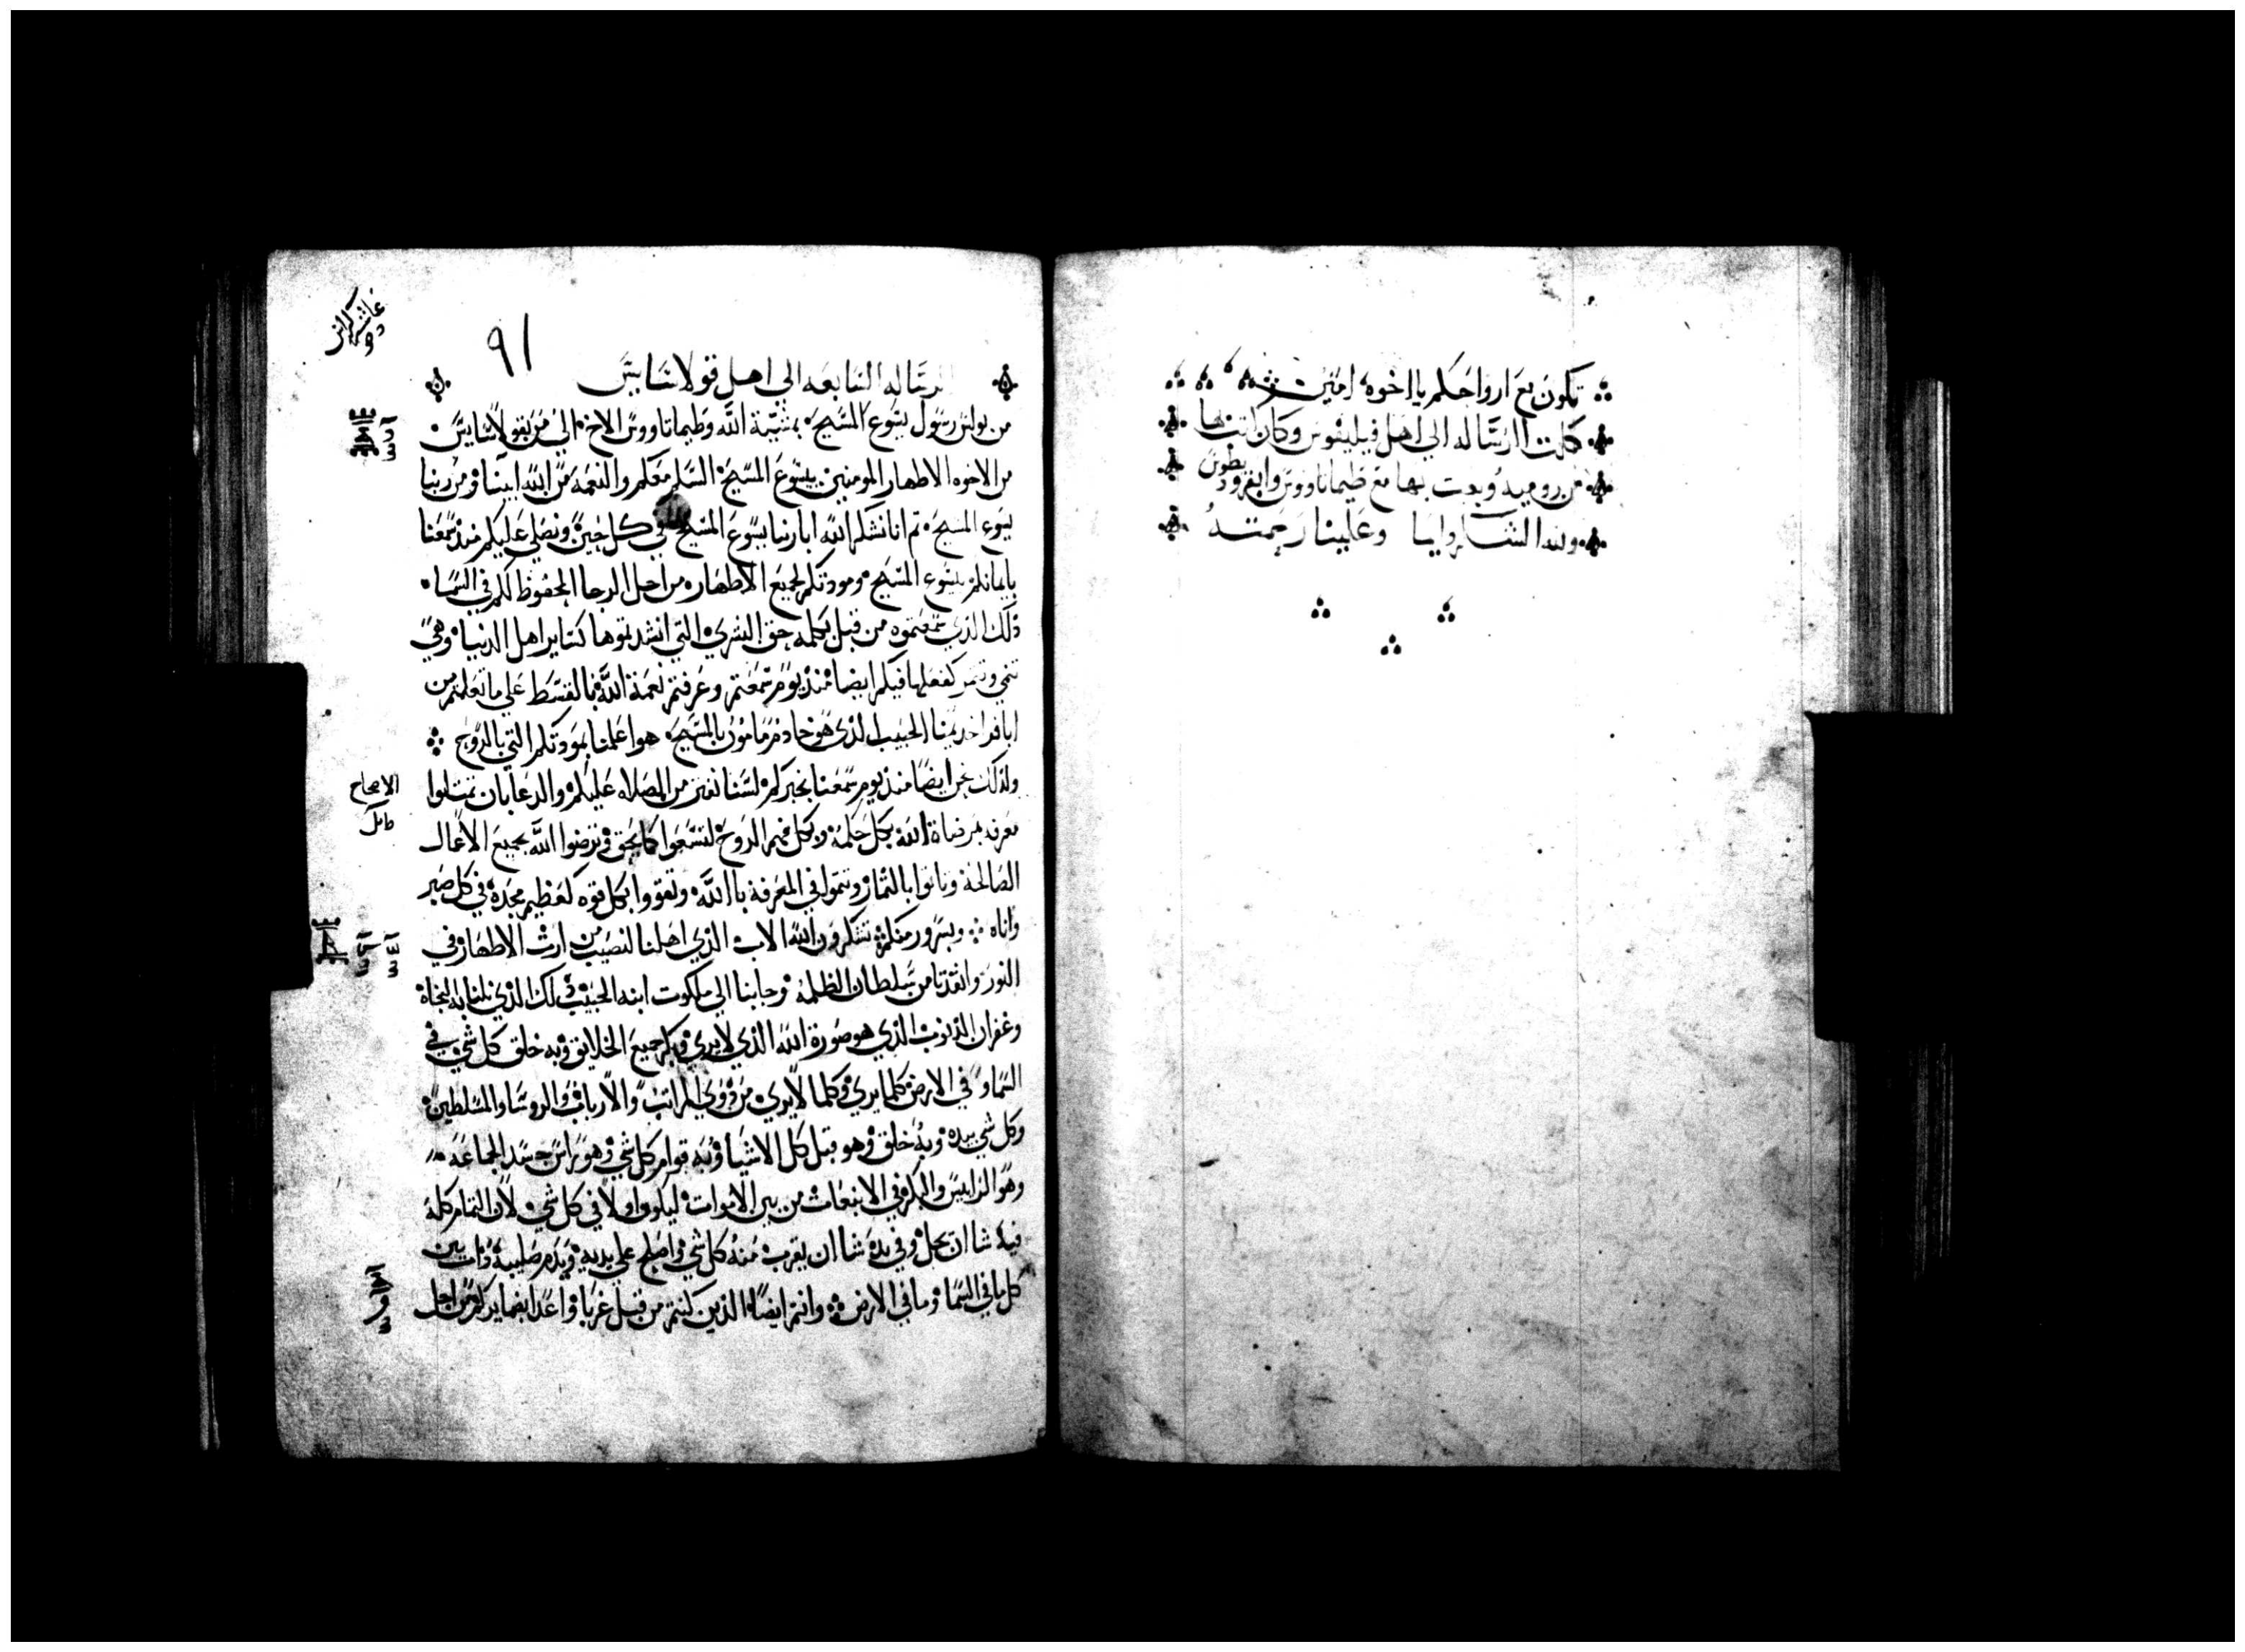 تكون مع ارواحكم يا اخوه امين
كملت الرساله الي اهل فيليفوس وكان كتب بها
من روميه وبعت بها مع طيماتاووس وابفروديطوس
ولله الشكر دايما وعلينا رحمته
عاشر كراس
٩١
الرساله السابعه الي اهل قولاسايس
من بولس رسول يسوع المسيح بمشيية الله وطيماتاووس الاخ الي من بقولاسايس
من الاخوه الاطهار المومنين بيسوع المسيح السلم معكم والنعمه من الله ابينا ومن ربنا
يسوع المسيح ثم انا نشكر الله ابا ربنا يسوع المسيح في كل حين ونصلي عليكم منذ سمعنا
بايمانكم بيسوع المسيح ومودتكم لجميع الاطهار من اجل الرجا المحفوظ لكم في السما
ذلك الذي سمعتموه من قبل بكلمه حق البشري التي انشدتموها كساير اهل الدنيا وهي
تنمي وتثمر كفعلها فيكم ايضا منذ يوم سمعتم وعرفتم نعمة الله بالقسط علي ما تعلمتم من
ابافرا خدينا الحبيب الذي هو خادم مامون بالمسيح هو اعلمنا بمودتكم التي بالروح
ولذلك نحن ايضا منذ يوم سمعنا بخبركم لسنا نفتر من الصلاه عليكم والدعا بان تمتلوا
معرفه بمرضاة الله بكل حكمه وبكل فهم الروح لتسعوا كما يحق وترضوا الله بجميع الاعمال
الصالحة وتاتوا بالثمار وتنموا في المعرفة بالله وتقووا بكل قوه كعظيم مجده في كل صبر
واناه وبسرور منكم تشكرون الله الاب الذي اهلنا لنصيب من ارث الاطهار في
النور وانقذنا من سلطان الظلمه وجابنا الي ملكوت ابنه الحبيب ذلك الذي نلنا به النجاة
وغفران الذنوب الذي هو صورة الله الذي لا يري وبكر جميع الخلايق وبه خلق كل شي في
السما وفي الارض كلما يري وكلما لا يري من ذوي المراتب والارباب والروسا والمسلطين
وكل شي بيده وبه خلق وهو قبل كل الاشيا وبه قوام كل شي وهو راس جسد الجماعه
وهو الراييس والبكر في الانبعاث من بين الاموات ليكون اولا في كل شي لان التمام كله
فيه شا ان يحل وفي يده شا ان يقرب منه كل شي واصلح علي يديه وبدم صليبه ذات بين
كل ما في السما وما في الارض وانتم ايضا الذين كنتم من قبل غربا واعدا بضمايركم من اجل
الاصحاح